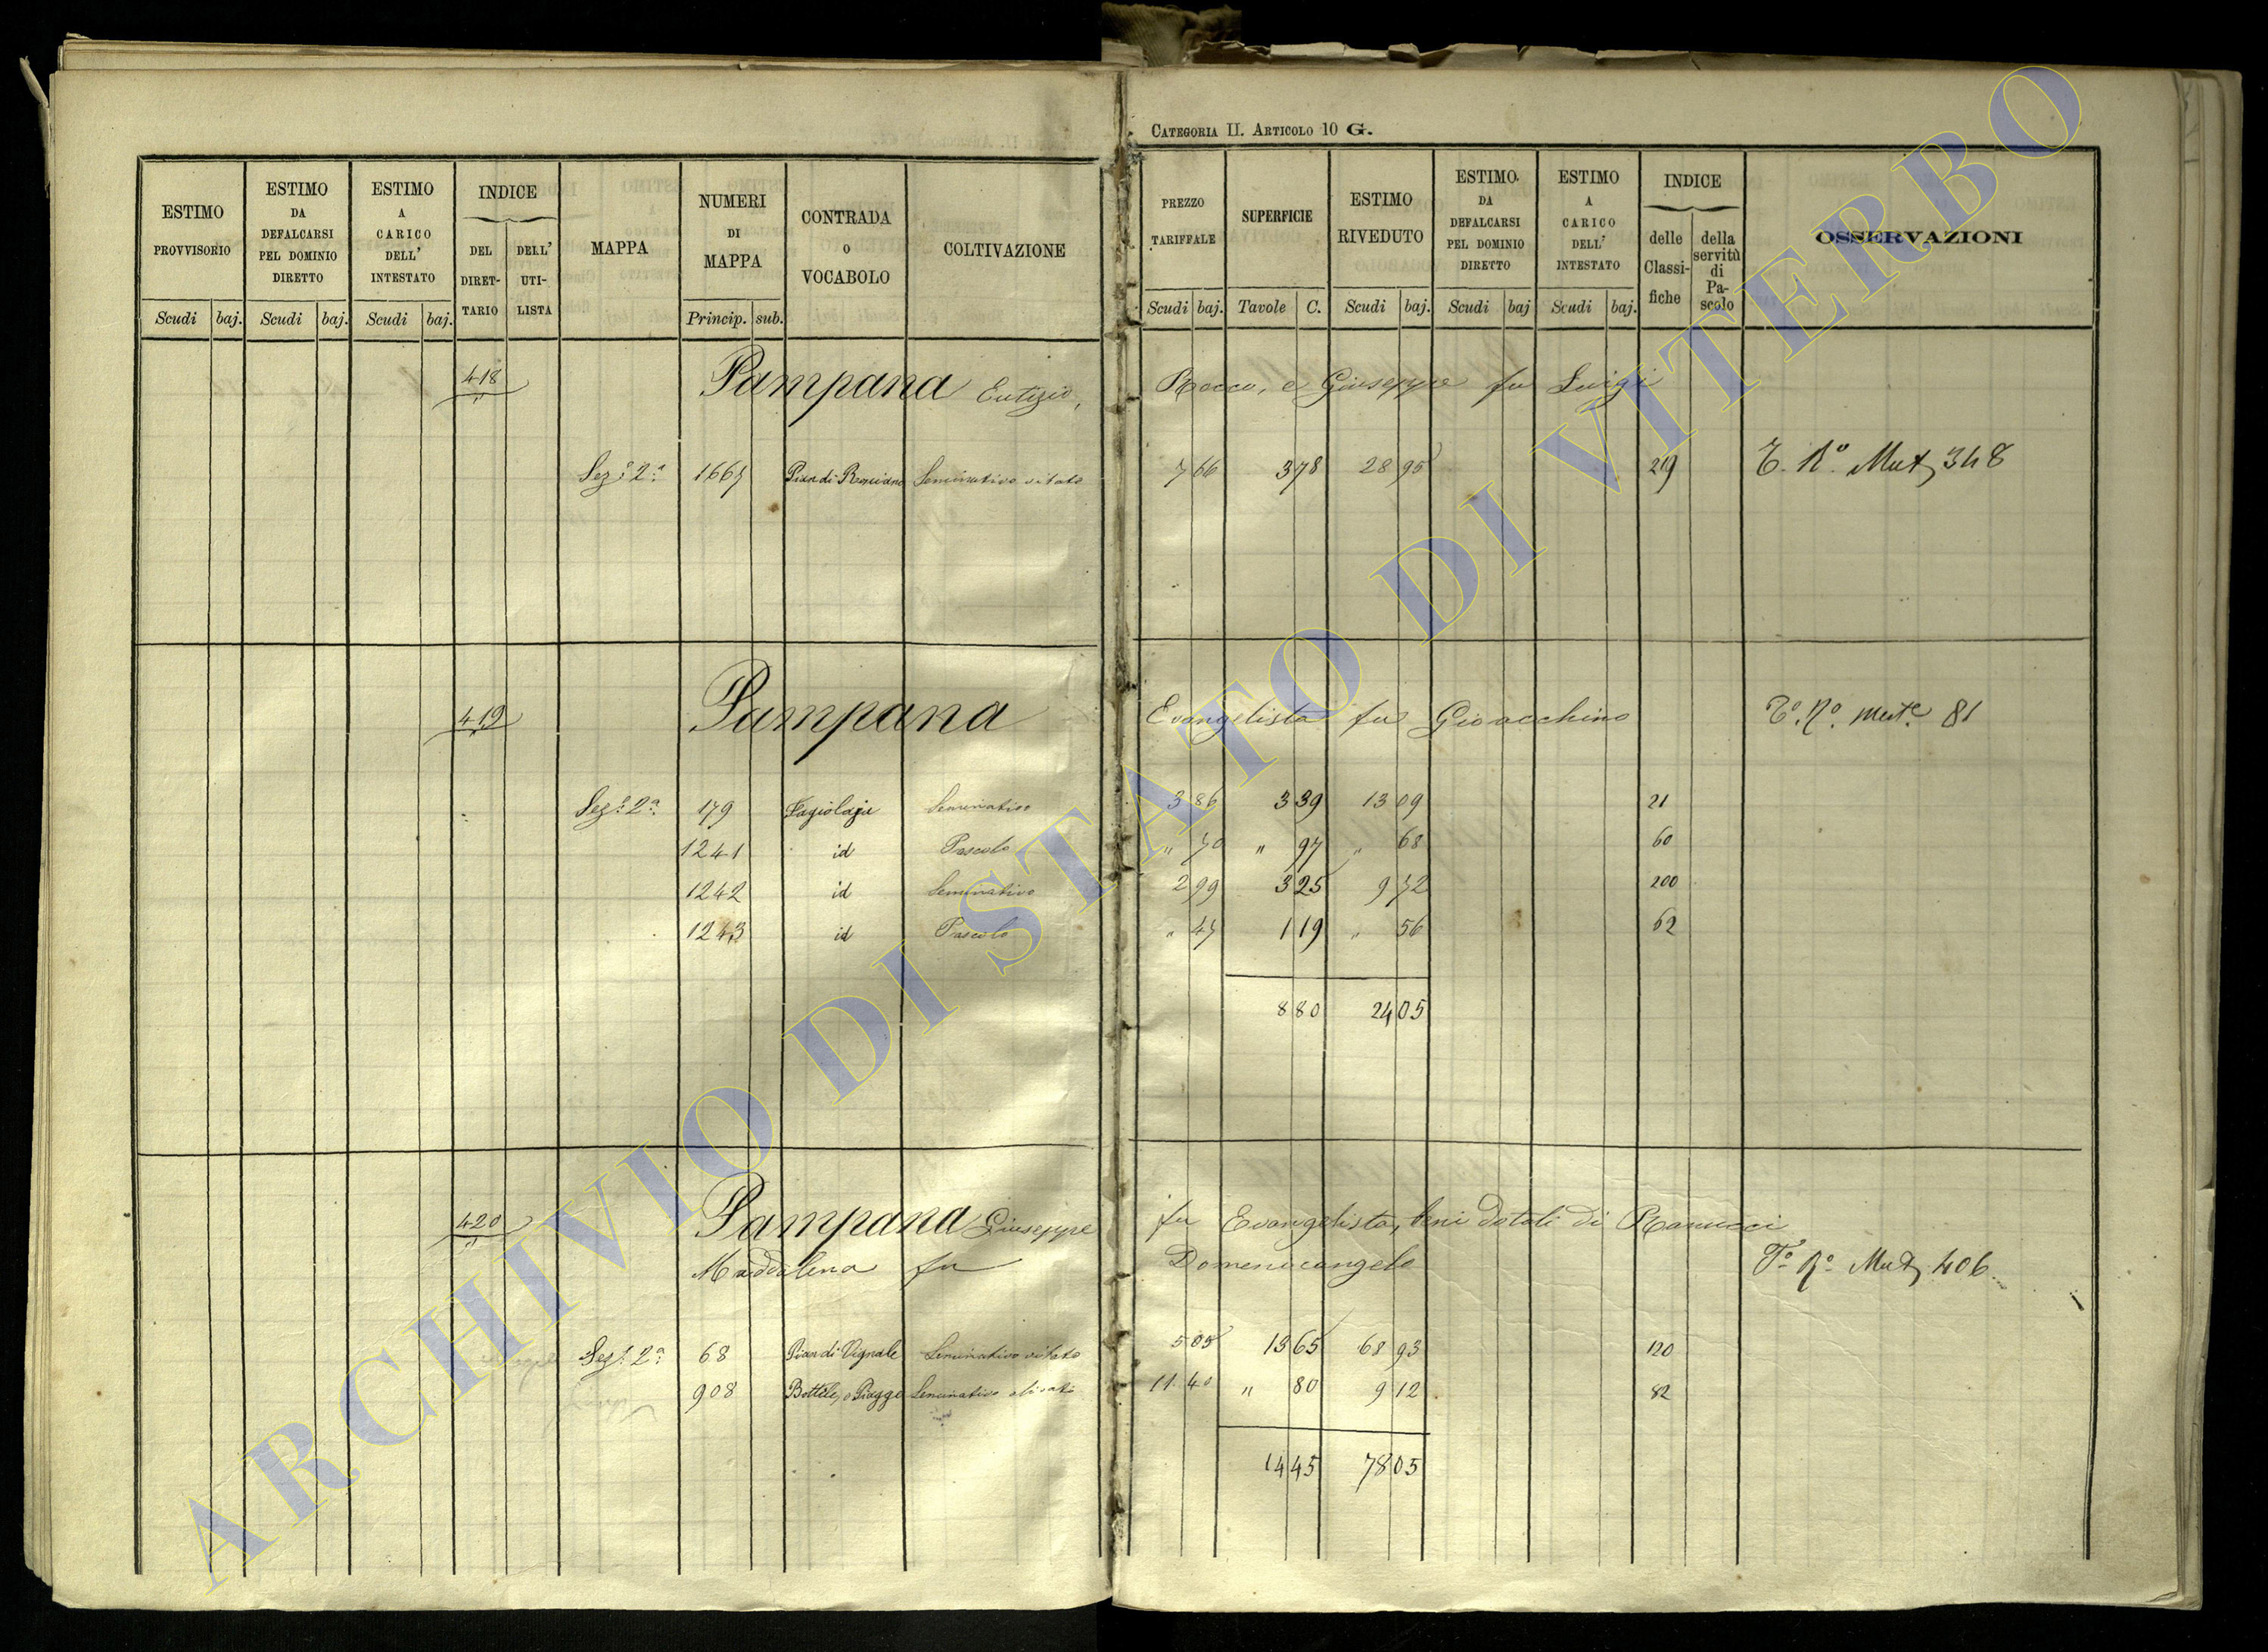 CATEGORIA II. ARTICOLO 10 G.
ESTIMO PROVVISORIO Scudi baj.
ESTIMO DA DEFALCARSI PEL DOMINIO DIRETTO Scudi baj.
ESTIMO A CARICO DELL' INTESTATO Scudi baj.
INDICE DEL DIRET-TARIO DELL' UTI-LISTA
MAPPA
NUMERI DI MAPPA Princip. sub.
CONTRADA o VOCABOLO
COLTIVAZIONE
PREZZO TARIFFALE Scudi baj.
SUPERFICIE Tavole C.
ESTIMO RIVEDUTO Scudi baj.
ESTIMO DA DEFALCARSI PEL DOMINIO DIRETTO Scudi baj
ESTIMO A CARICO DELL' INTESTATO Scudi baj.
INDICE delle Classi-fiche della servitù di Pa-scolo
OSSERVAZIONI
418 Pampana Eutizio, Rocco, e Giuseppe fu Luigi
Sez.e 2.a 1667 Pian di Seminativo vitato 7 66 3 78 28 95 219 T. No. Mut 348
419 Pampana Evangelista fu Gioacchino To. No. mut.e 81
Sez.e 2.a 179 Fagiolaja Seminativo 3 86 3 39 13 09 21
1241 id Pascolo " 70 " 97 " 68 60
1242 id Seminativo 2 99 3 25 9 72 200
1243 id Pascolo " 47 1 19 " 56 62
8 80 24 05
420 Pampana Giuseppe fu Evangelista, beni dotali di Ranucci
Maddalena fu Domenicangelo To. No. Mut 406
Sez.e 2.a 68 Pian di Vignale Seminativo vitato 5 05 13 65 68 93 120
908 Bottile, o Piagge Seminativo olivato 11 40 " 80 9 12 82
14 45 78 05
ARCHIVIO DI STATO DI VITERBO